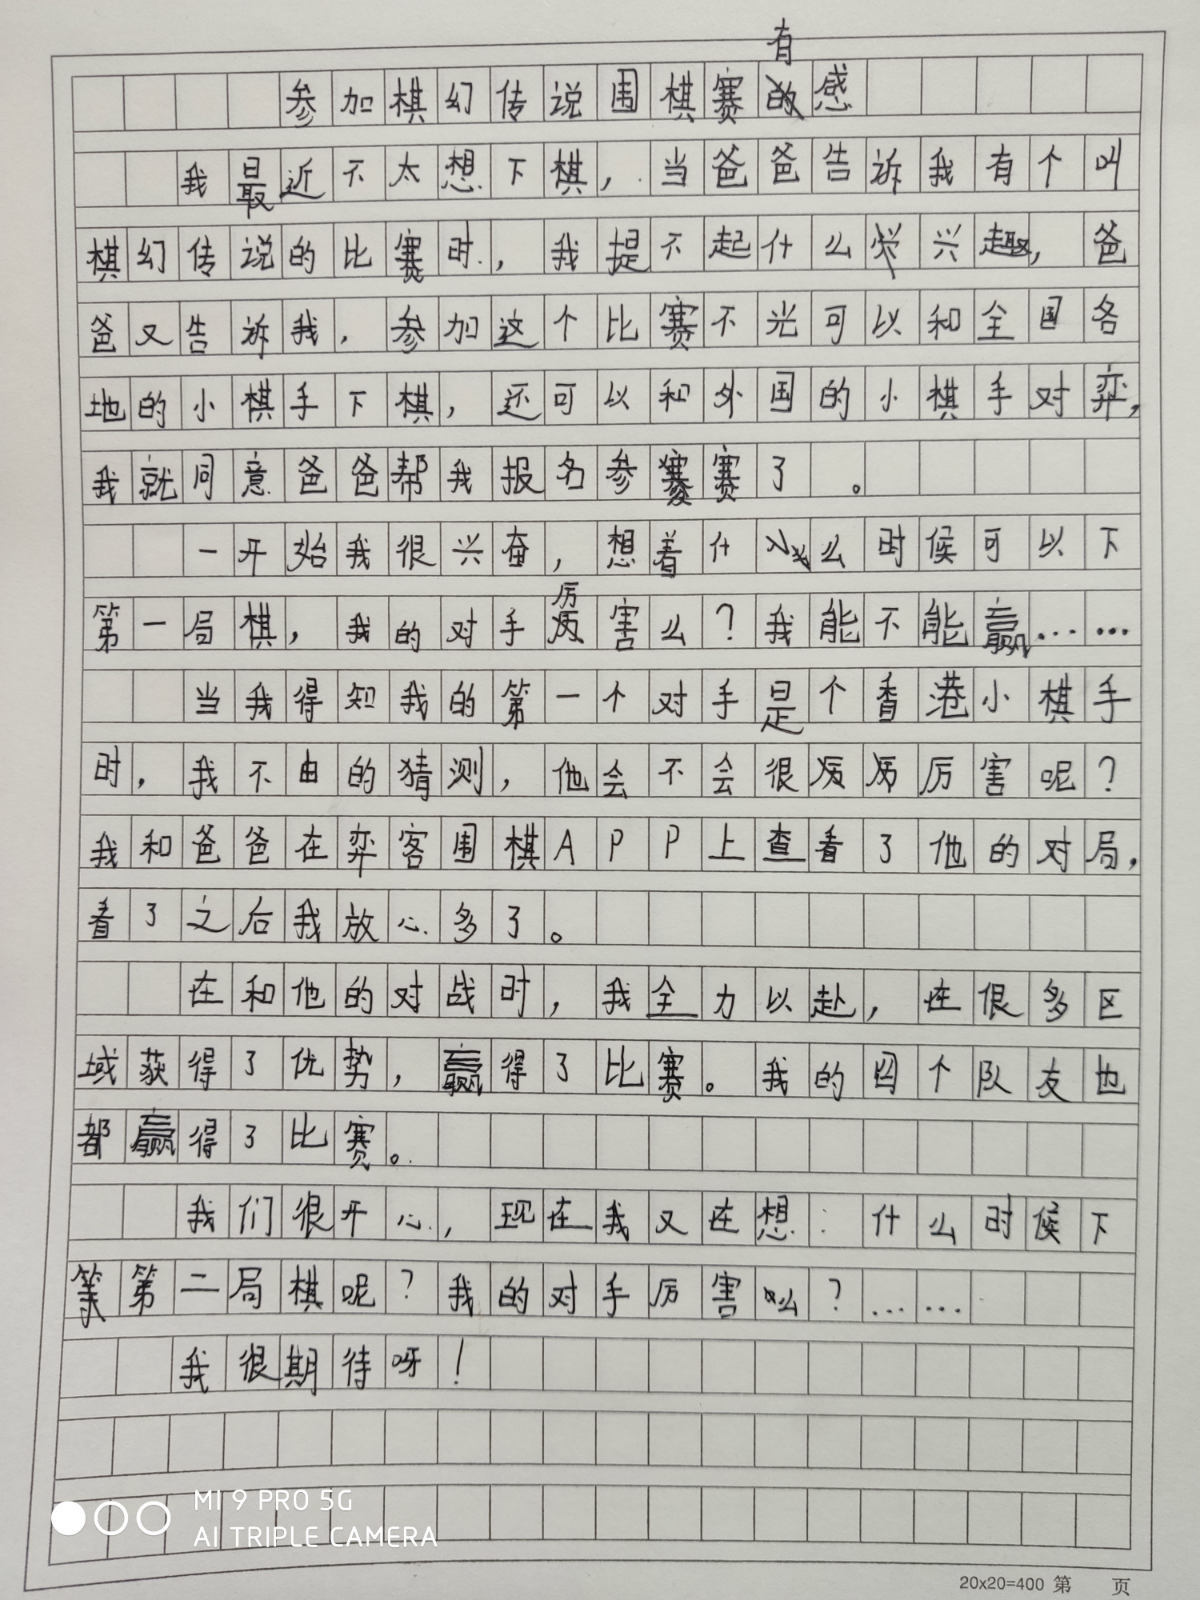 参加棋幻传说围棋赛有感
我最近不太想下棋，当爸爸告诉我有个叫
棋幻传说的比赛时，我提不起什么兴趣，爸
爸又告诉我，参加这个比赛不光可以和全国各
地的小棋手下棋，还可以和外国的小棋手对弈，
我就同意爸爸帮我报名参赛了。
一开始我很兴奋，想着什么时候可以下
第一局棋，我的对手厉害么？我能不能赢……
当我得知我的第一个对手是个香港小棋手
时，我不由的猜测，他会不会很厉害呢？
我和爸爸在弈客围棋APP上查看了他的对局，
看了之后我放心多了。
在和他的对战时，我全力以赴，在很多区
域获得了优势，赢得了比赛。我的四个队友也
都赢得了比赛。
我们很开心，现在我又在想：什么时候下
第二局棋呢？我的对手厉害么？……
我很期待呀！
MI 9 PRO 5G
AI TRIPLE CAMERA
20x20=400 第 页